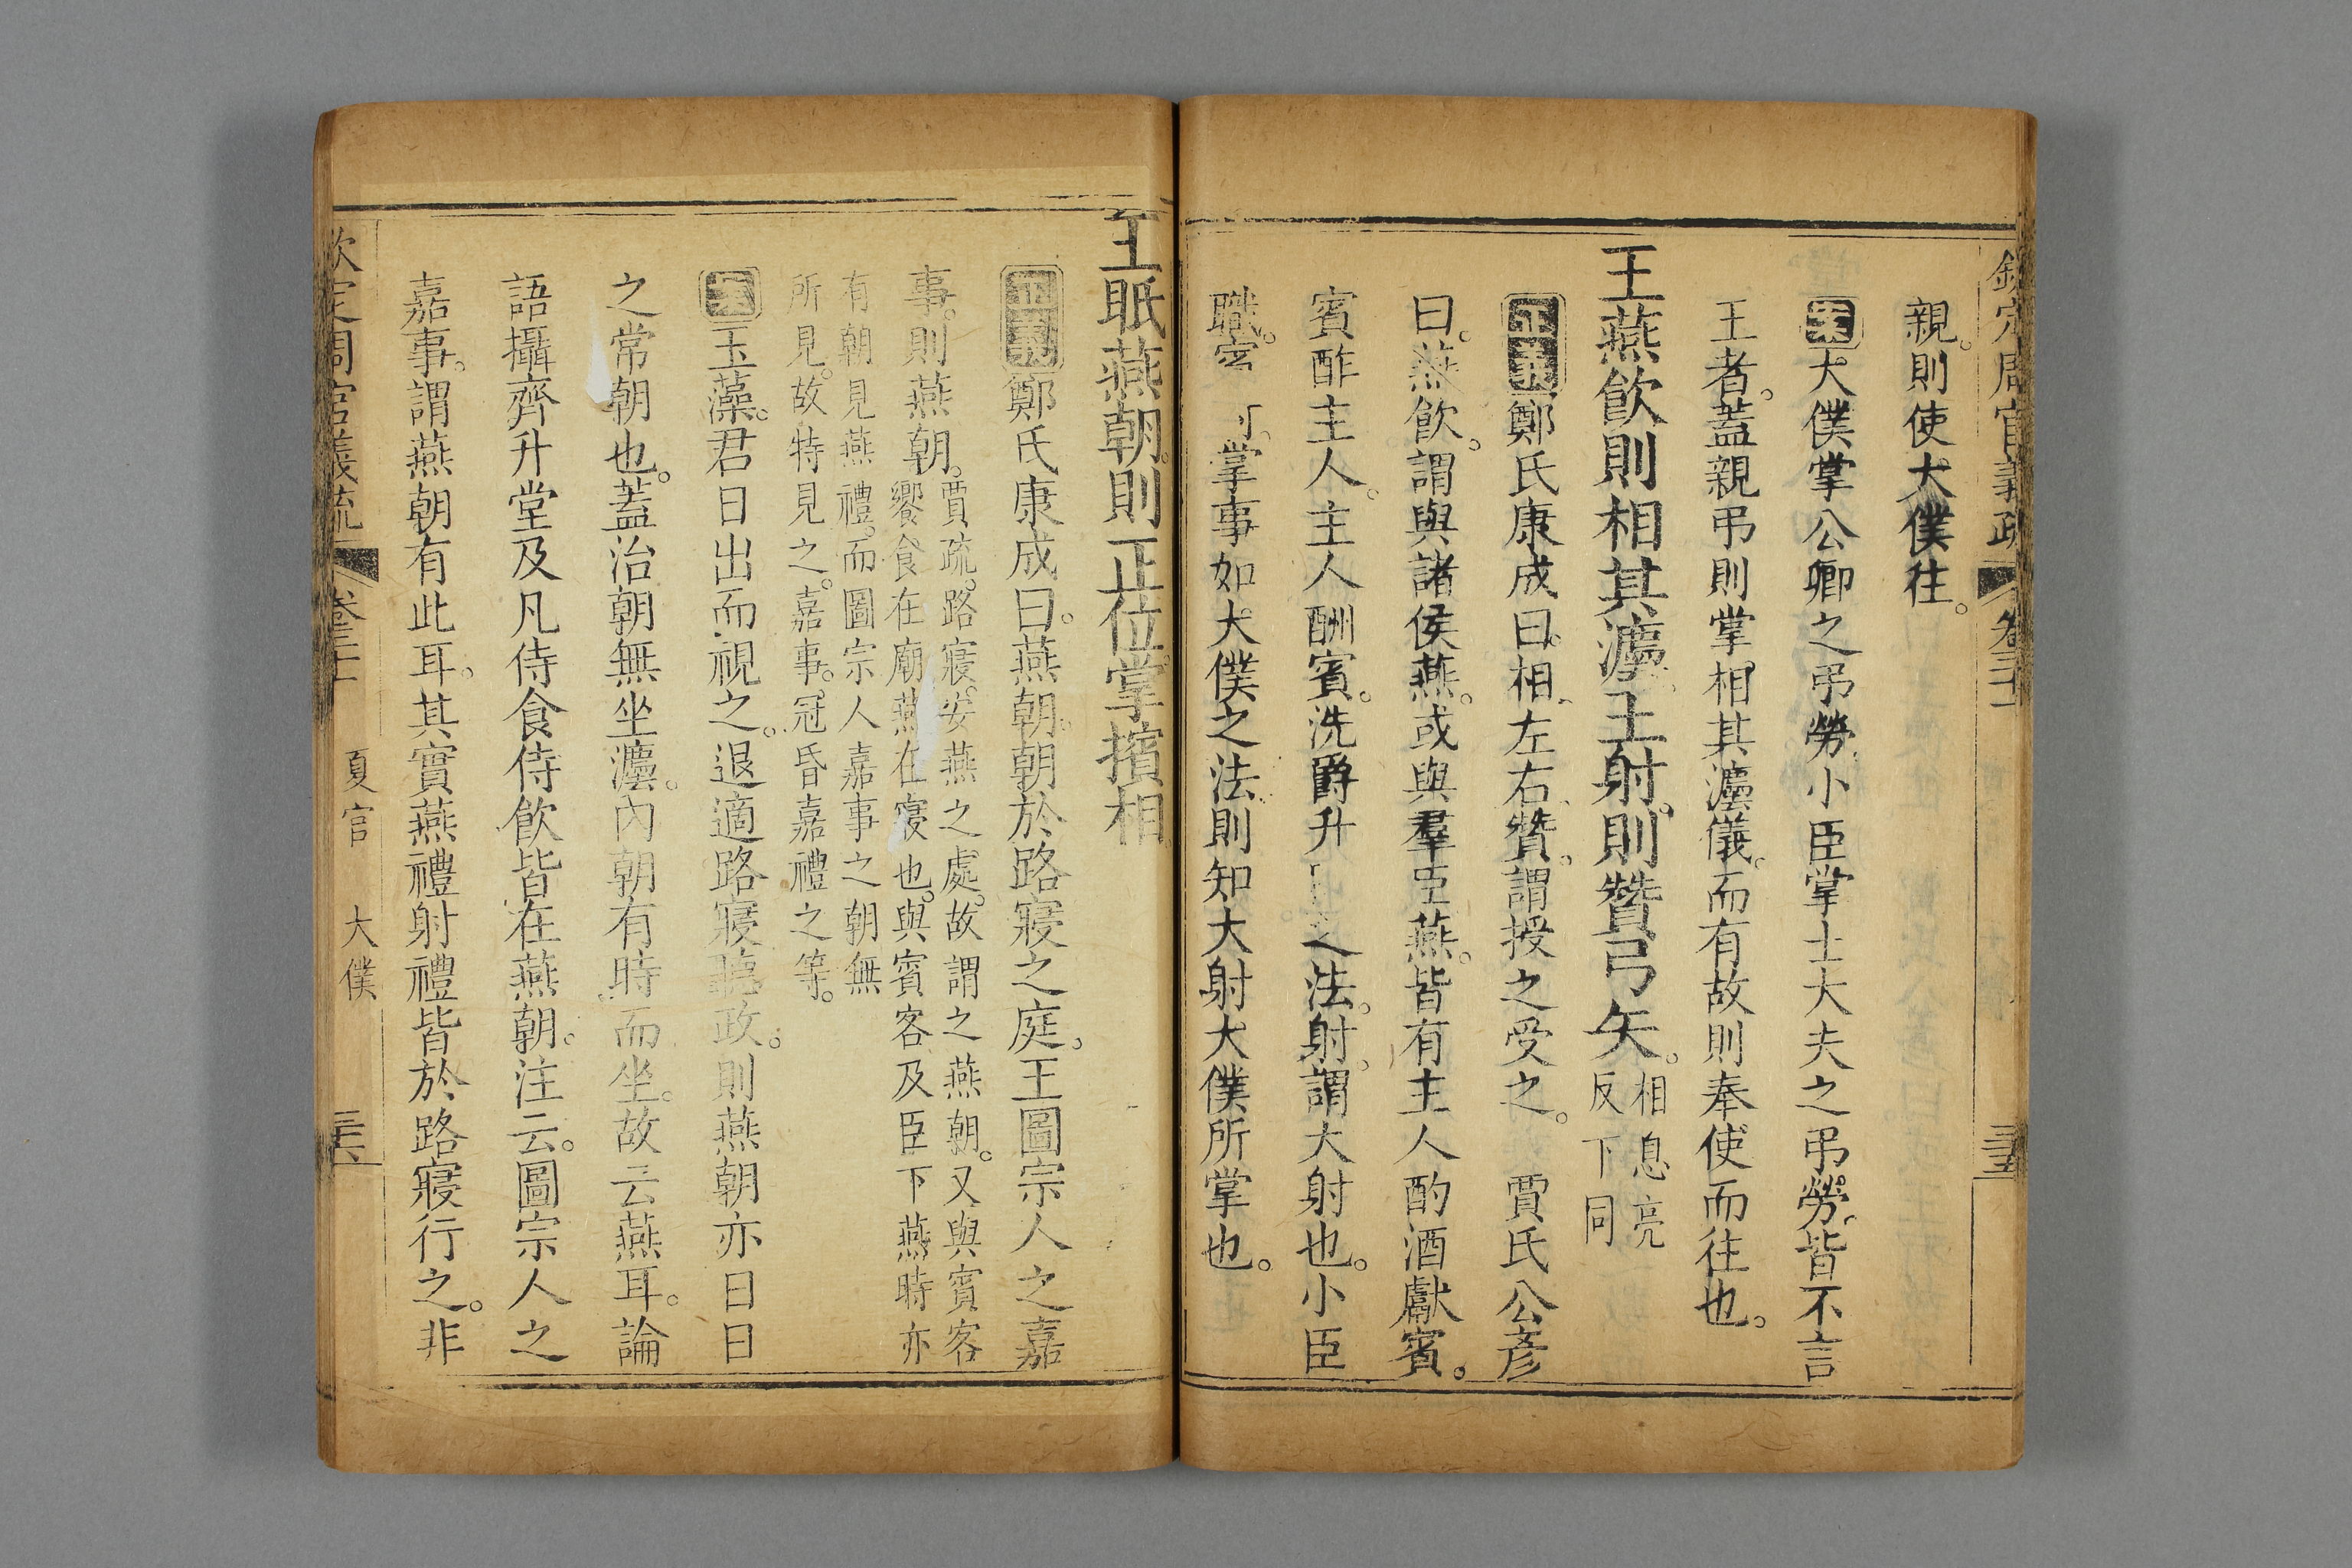 欽定周官義疏 卷三十一 三五
親。則使大僕往。
案大僕掌公卿之弔勞小臣掌士大夫之弔勞皆不言
王者。蓋親弔則掌相其灋儀。而有故則奉使而往也。
王燕飲則相其灋王射則贊弓矢。相息亮反下同
正義鄭氏康成曰。相左右贊。謂授之受之。 賈氏公彥
曰。燕飲。謂與諸侯燕。或與羣臣燕。皆有主人酌酒獻賓。
賓酢主人。主人酬賓。洗爵升之法。射謂大射也。小臣
職。掌事如大僕之法則知大射大僕所掌也。
王眡燕朝則正位掌擯相
正義鄭氏康成曰。燕朝。朝於路寢之庭。王圖宗人之嘉
事。則燕朝。賈疏。路寢。安燕之處。故謂之燕朝。又與賓客
饗食在廟燕在寢也。與賓客及臣下燕時亦
有朝見燕禮。而圖宗人嘉事之朝無
所見。故特見之。嘉事。冠昏嘉禮之等。
案玉藻。君日出而視之。退適路寢聽政。則燕朝亦日日
之常朝也。蓋治朝無坐灋。內朝有時而坐。故云燕耳。論
語攝齊升堂及凡侍食侍飲皆在燕朝。注云。圖宗人之
嘉事。謂燕朝有此耳。其實燕禮射禮皆於路寢行之。非
欽定周官義疏 卷三十一 夏官 大僕 三六